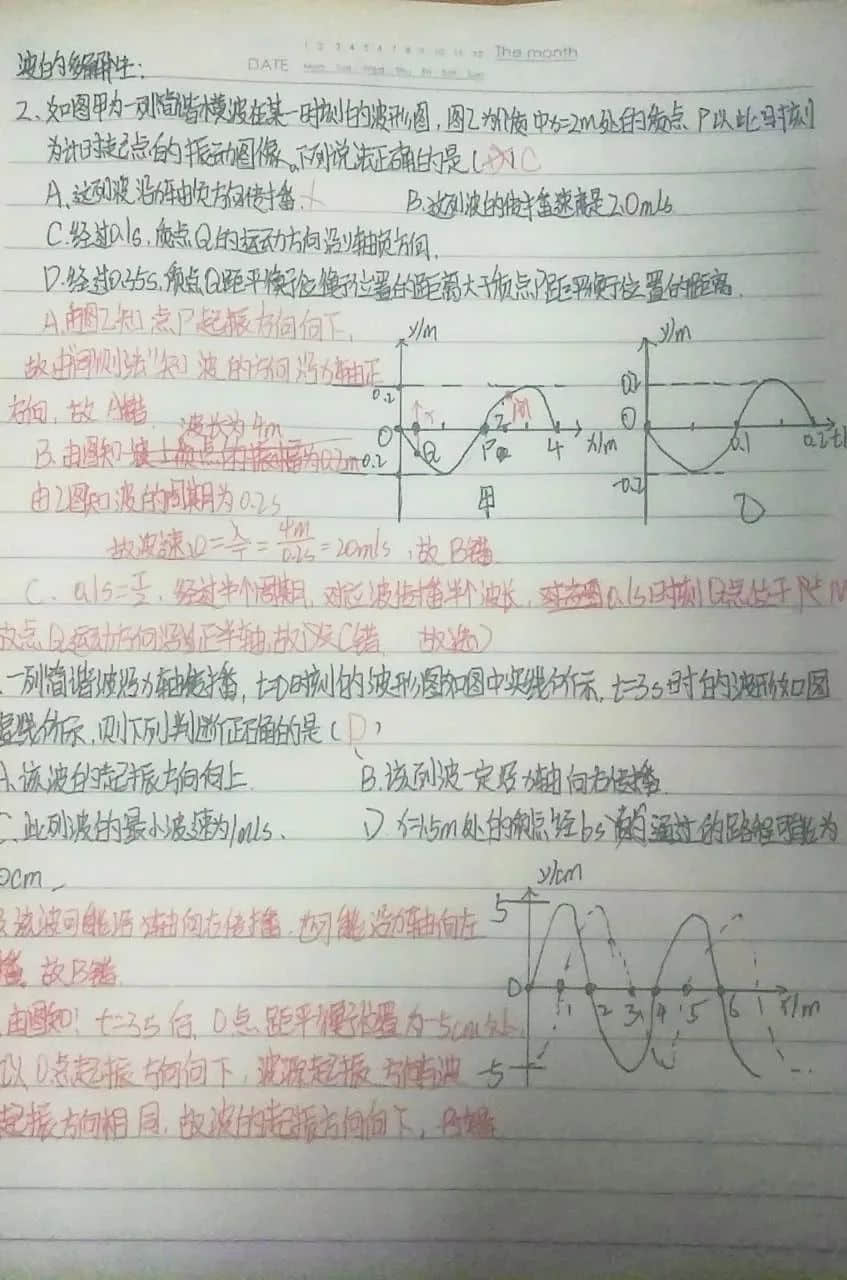 1 2 3 4 5 6 7 8 9 10 11 12 The month
DATE Mon Tue Wed Thu Fri Sat Sun
波的多解性:
2、如图甲为一列简谐横波在某一时刻的波形图,图乙为介质中x=2m处的质点P以此时刻
为计时起点的振动图像。下列说法正确的是( )C
A、这列波沿x轴负方向传播. ×
B.这列波的传播速度是20m/s
C.经过0.1s,质点Q的运动方向沿y轴负方向.
D.经过0.35s,质点Q距平衡位置的距离大于质点P距平衡位置的距离.
A.由图乙知点P起振方向向下,
故由"同侧法"知波的方向沿x轴正
方向,故A错. 波长为4m
B.由图知
由乙图知波的周期为0.2s
故波速v=λ/T=4m/0.2s=20m/s,故B错
C.0.1s=T/2,经过半个周期,对应波传播半个波长,
故点Q运动方向沿y正半轴,故C错. 故选D
y/m
0.2
0
0.2
Q
P
4
x/m
甲
y/m
0.2
0
-0.2
0.1
0.2
乙
一列简谐波沿x轴传播,t=0时刻的波形图如图中实线所示,t=3s时的波形如图
虚线所示,则下列判断正确的是(D)
A.该波的起振方向向上.
B.该列波一定沿x轴向右传播
C.此列波的最小波速为1m/s.
D x=1.5m处的质点经6s 通过的路程可能为
0cm
该波可能沿x轴向右传播,也可能沿x轴向左
播,故B错.
由图知:t=3s后,O点距平衡位置为-5cm处,
以O点起振方向向下,波源起振方向与波
起振方向相同,故波的起振方向向下,A错
y/cm
5
0
-5
1 2 3 4 5 6 7
x/m